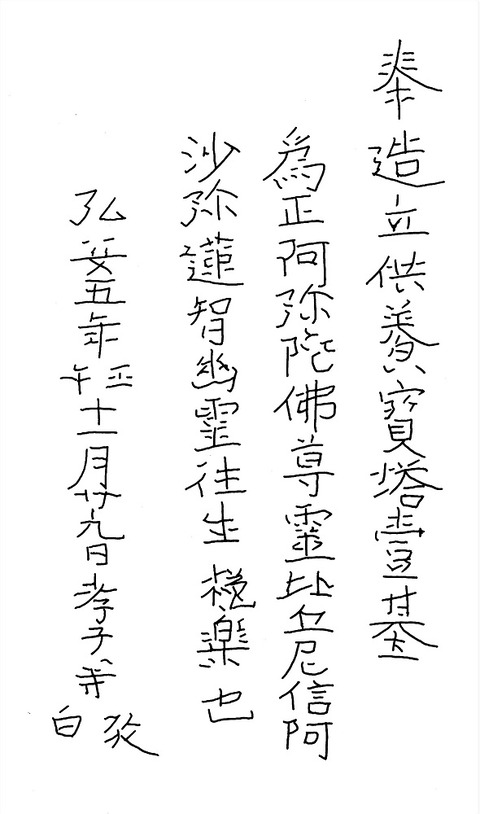 奉造立供養寶塔壹基
爲正阿弥陀佛尊霊比丘尼信阿
沙弥蓮智幽霊往生極楽也
弘安五年壬午十一月廿九日孝子等敬白